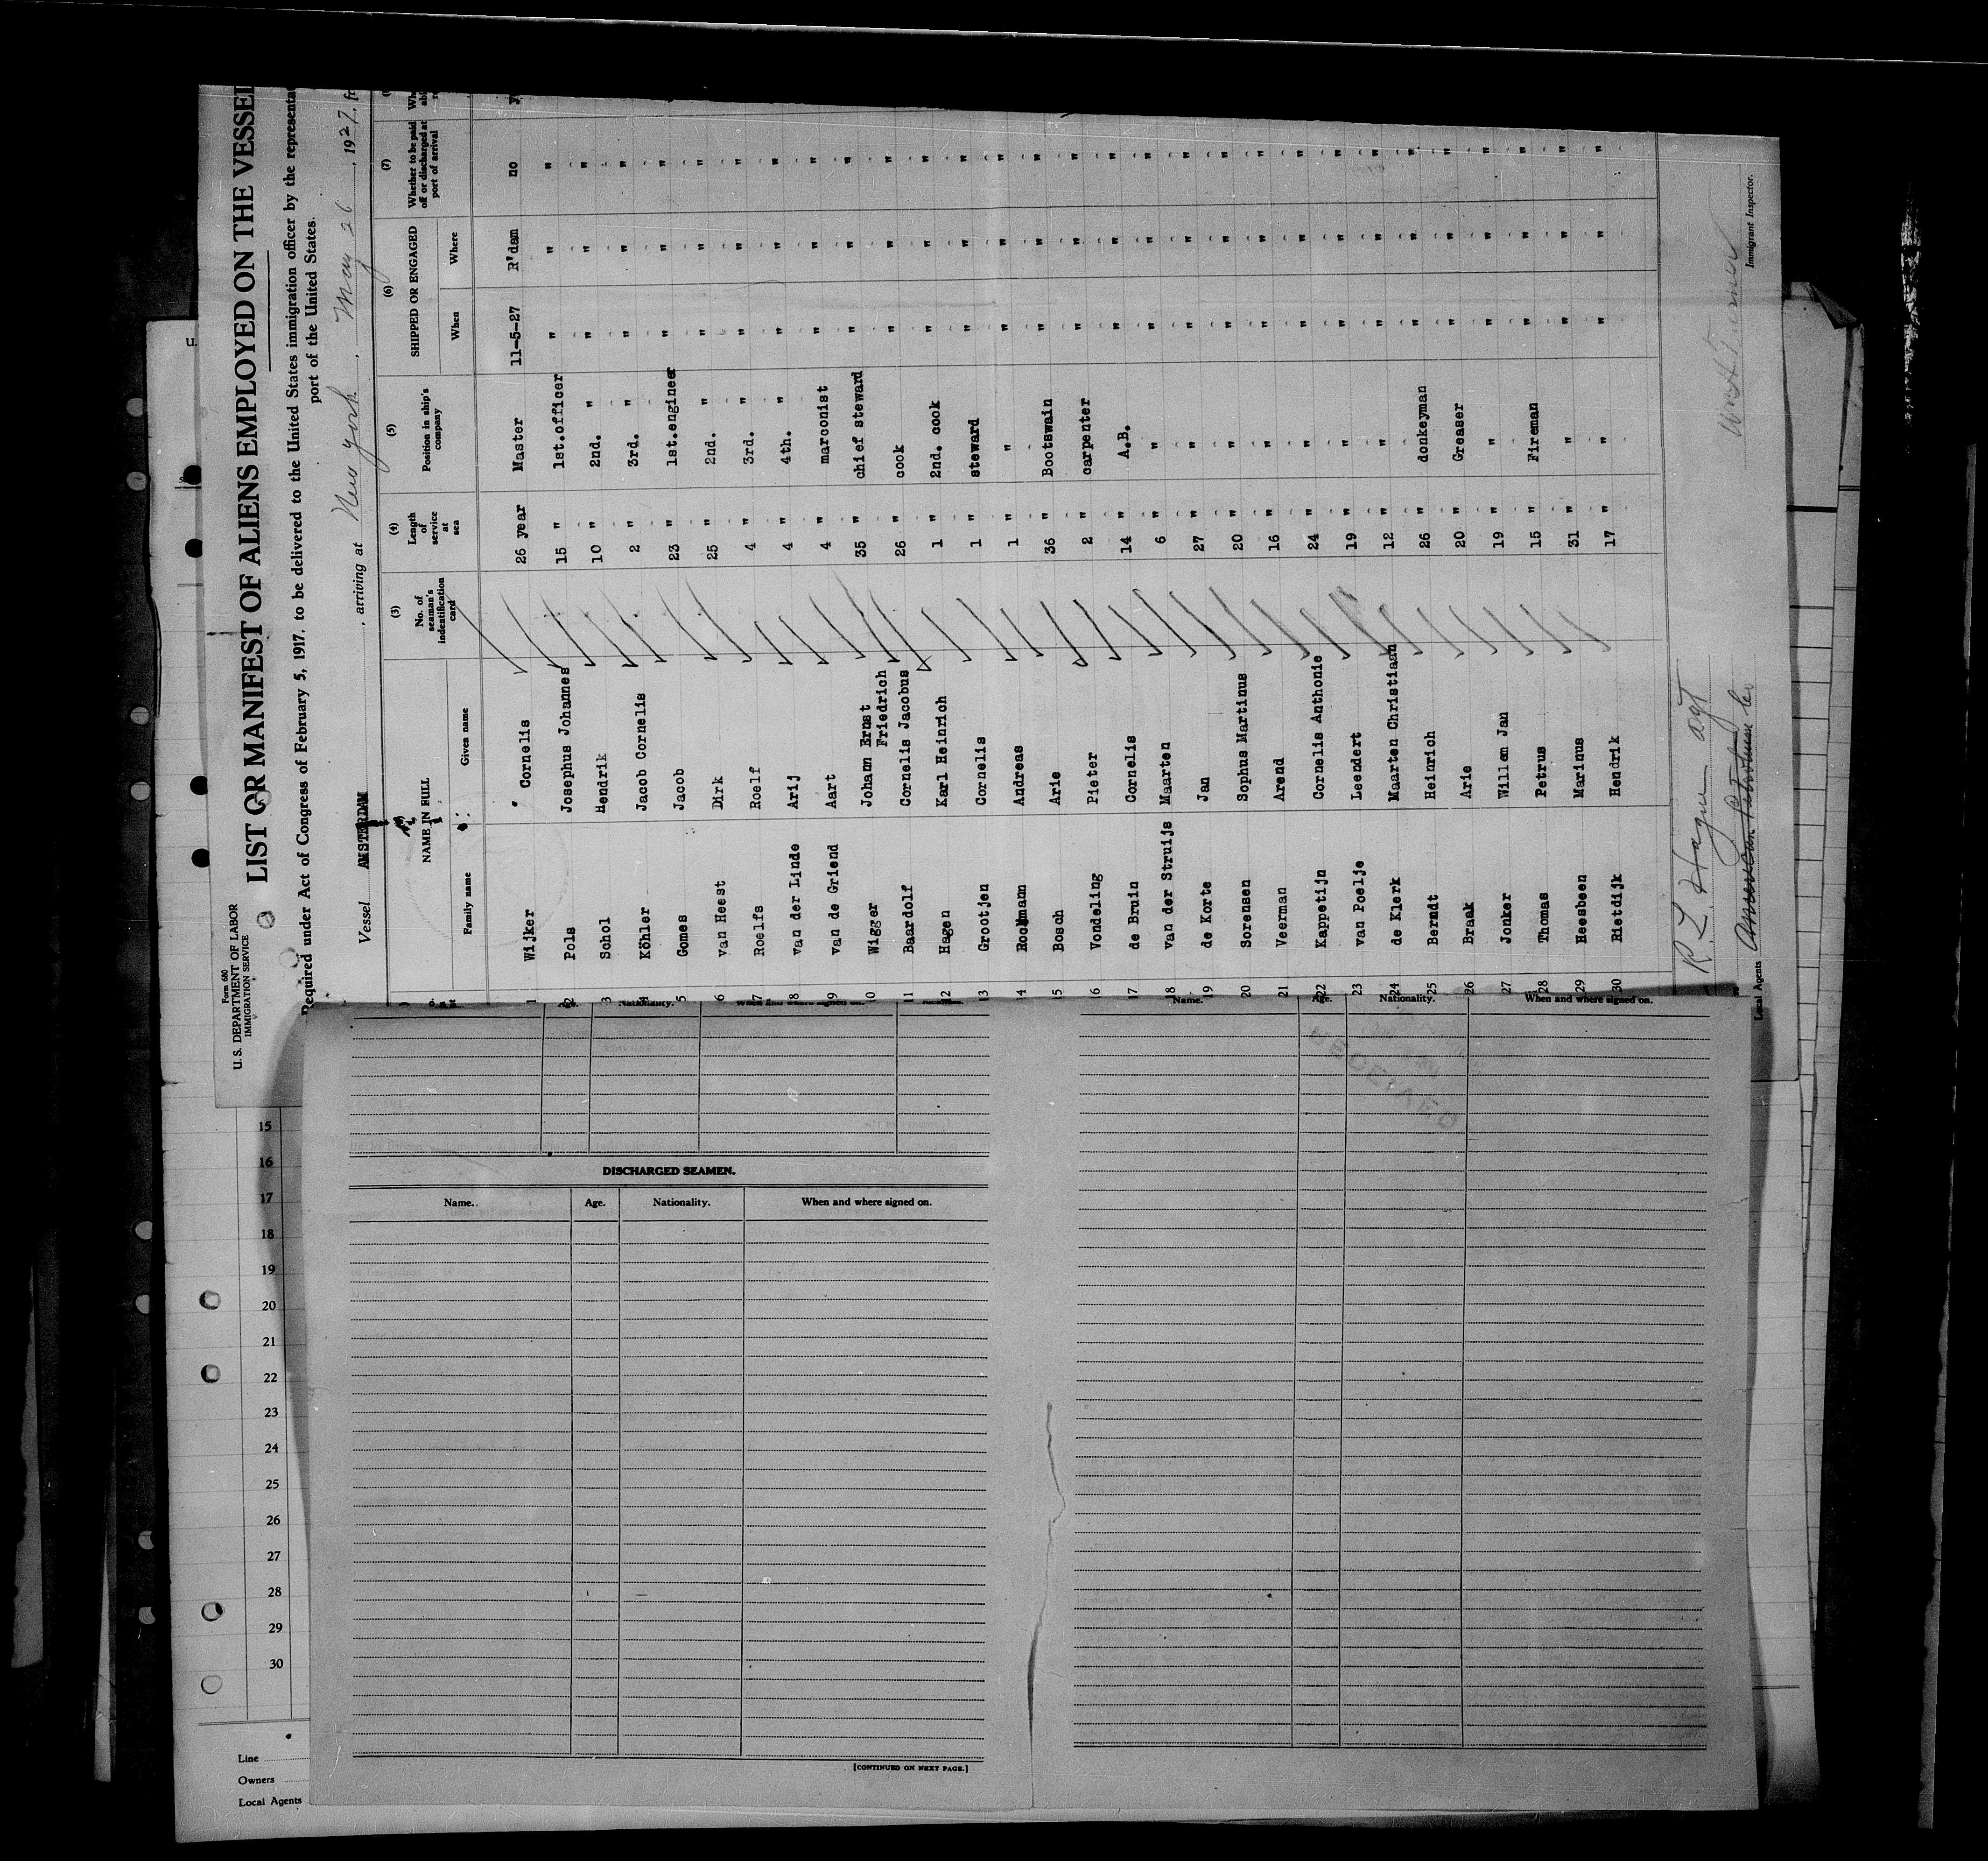 Form 680
U. S. DEPARTMENT OF LABOR
IMMIGRATION SERVICE
LIST OR MANIFEST OF ALIENS EMPLOYED ON THE VESSEL
Required under Act of Congress of February 5, 1917, to be delivered to the United States immigration officer by the representa
port of the United States.
Vessel AMSTERDAM, arriving at New York, May 26, 1927, fr
NAME IN FULL
Family name Given name
(3) No. of seaman's indentification card
(4) Length of service at sea
(5) Position in ship's company
(6) SHIPPED OR ENGAGED
When Where
(7) Whether to be paid off or discharged at port of arrival
1 Wijker Cornelis 26 year Master 11-5-27 R'dam no
2 Pols Josephus Johannes 15 " 1st.officer " " "
3 Schol Hendrik 10 " 2nd. " " " "
4 Köhler Jacob Cornelis 2 " 3rd. " " " "
5 Gomes Jacob 23 " 1st.engineer " " "
6 van Heest Dirk 25 " 2nd. " " " "
7 Roelfs Roelf 4 " 3rd. " " " "
8 van der Linde Arij 4 " 4th. " " " "
9 van de Griend Aart 4 " marconist " " "
10 Wigger Johann Ernst Friedrich 35 " chief steward " " "
11 Baardolf Cornelis Jacobus 26 " cook " " "
12 Hagen Karl Heinrich 1 " 2nd. cook " " "
13 Grootjen Cornelis 1 " steward " " "
14 Andreas 1 " " " " "
15 Bosch Arie 36 " Bootswain " " "
16 Vondeling Pieter 2 " carpenter " " "
17 de Bruin Cornelis 14 " A.B. " " "
18 van der Struijs Maarten 6 " " " " "
19 de Korte Jan 27 " " " " "
20 Sorensen Sophus Martinus 20 " " " " "
21 Veerman Arend 16 " " " " "
22 Kappetijn Cornelis Anthonie 24 " " " " "
23 van Poelje Leendert 19 " " " " "
24 de Klerk Maarten Christiaan 12 " " " " "
25 Berndt Heinrich 26 " donkeyman " " "
26 Braak Arie 20 " Greaser " " "
27 Jonker Willem Jan 19 " " " " "
28 Thomas Petrus 15 " Fireman " " "
29 Heesbeen Marinus 31 " " " " "
30 Rietdijk Hendrik 17 " " " " "
R. L. Hague agt
Local Agents American Petroleum Co
Immigrant Inspector.
Name. Age. Nationality. When and where signed on.
RECEIVED
DISCHARGED SEAMEN.
Name. Age. Nationality. When and where signed on.
[CONTINUED ON NEXT PAGE.]
15
16
17
18
19
20
21
22
23
24
25
26
27
28
29
30
Line
Owners
Local Agents